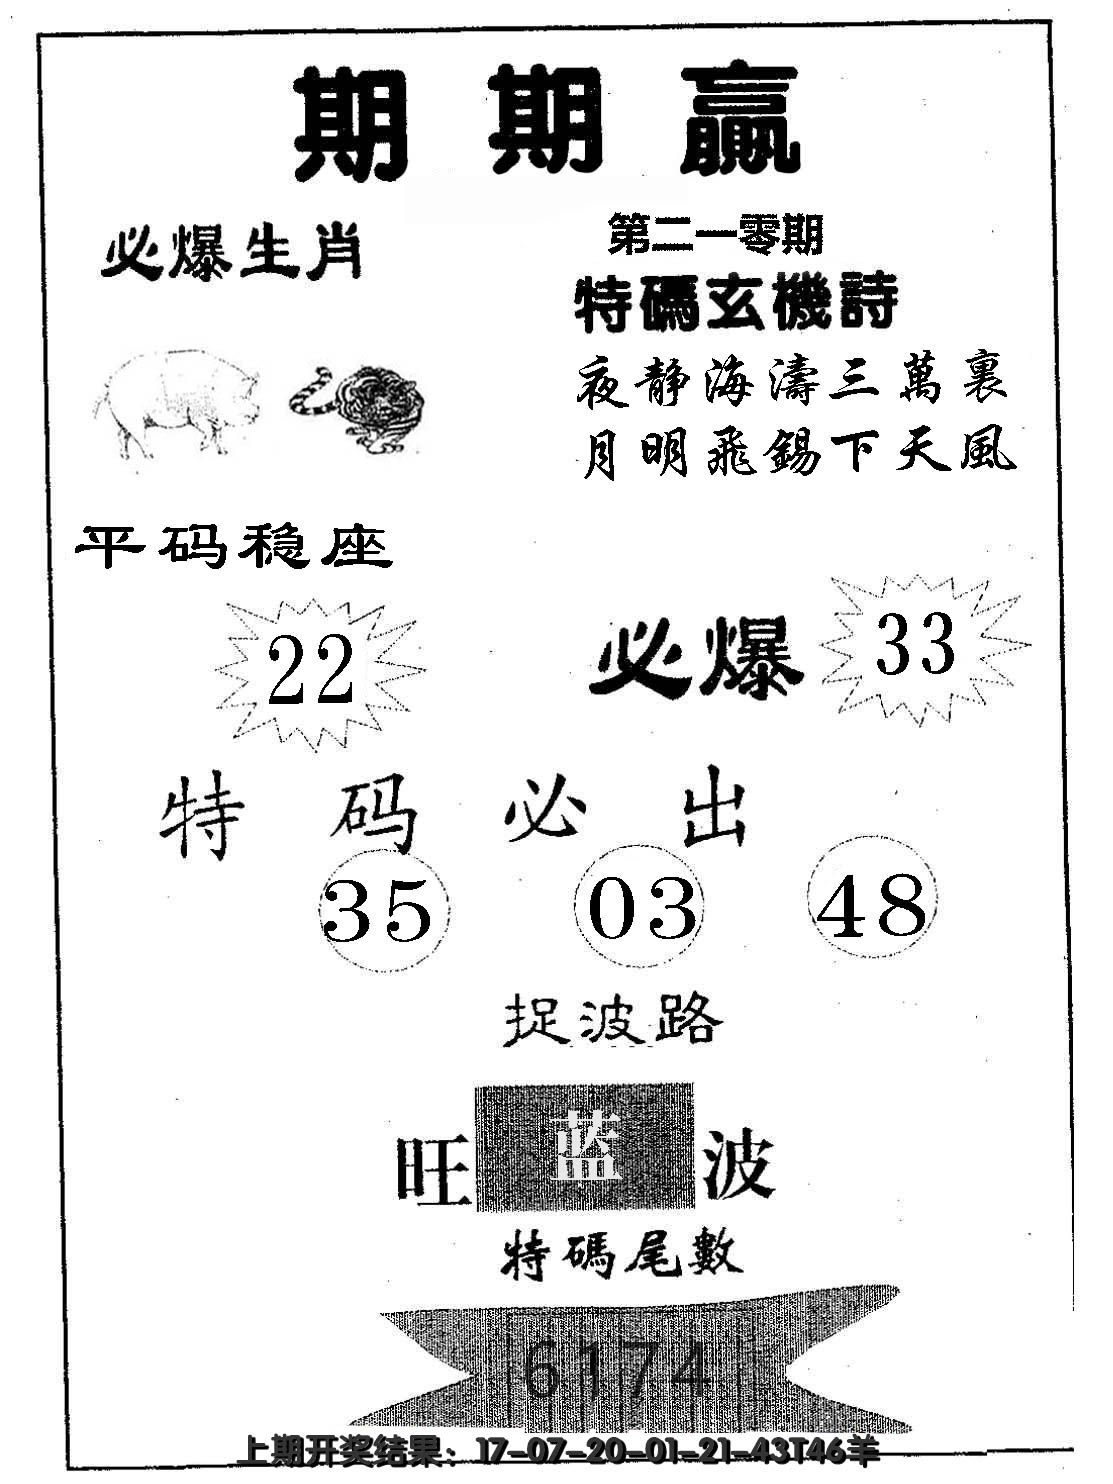 期期赢
必爆生肖
第二一零期
特碼玄機詩
夜静海濤三萬裏
月明飛錫下天風
平码稳座
22
必爆
33
特码必出
35 03 48
捉波路
旺蓝波
特碼尾數
6174
上期开奖结果：17-07-20-01-21-43T46羊